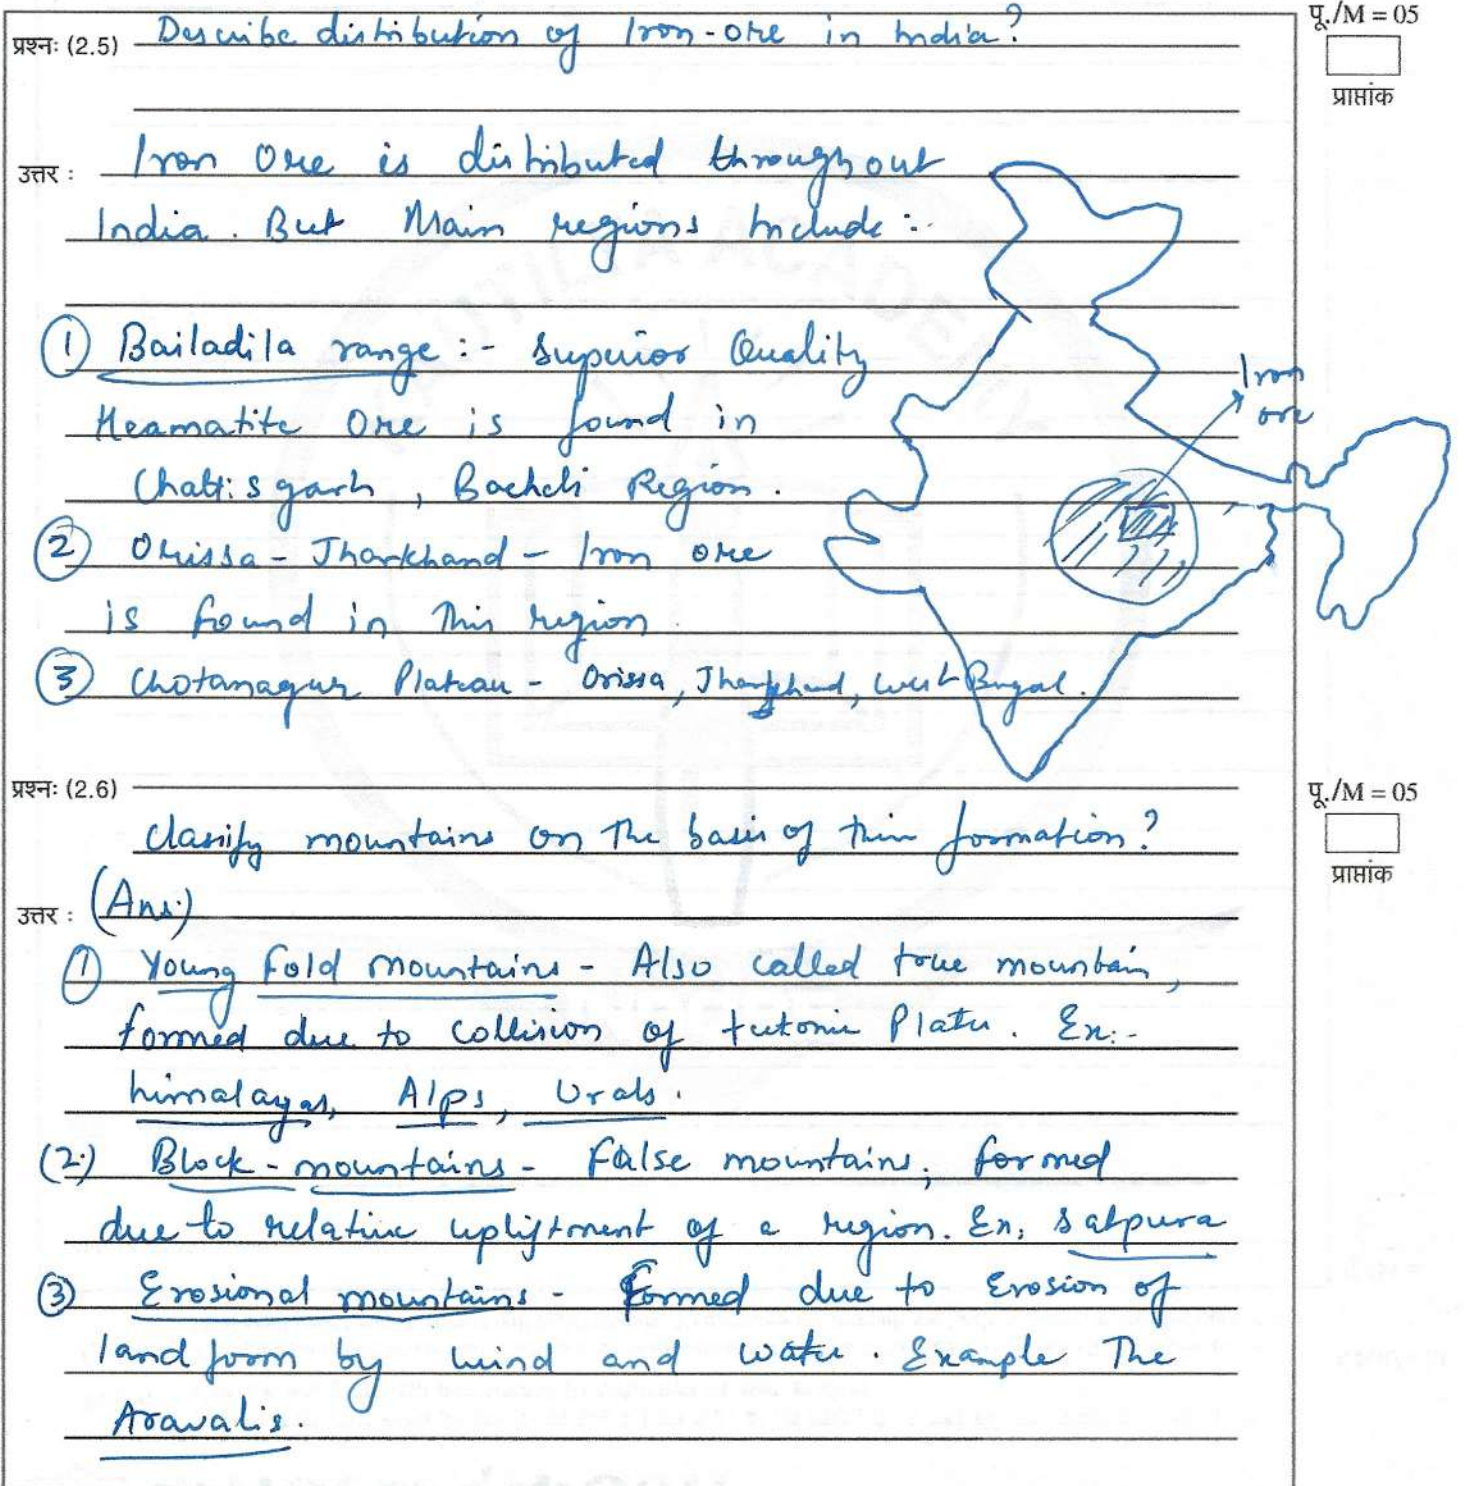 पू./M = 05
प्रश्न: (2.5) Describe distribution of Iron-ore in India?
प्राप्तांक
उत्तर : Iron Ore is distributed throughout
India. But Main regions Include :-
① Bailadila range :- Superior Quality
Heamatite Ore is found in
Chattisgarh, Bacheli Region.
② Orissa - Jharkhand - Iron ore
is found in this region.
③ Chotanagur Plateau - Orissa, Jharkhand, West Bngal.
Iron
ore
प्रश्न: (2.6)
पू./M = 05
Classify mountains on the basis of their formation?
प्राप्तांक
उत्तर : (Ans.)
① Young Fold mountains - Also called true mountain,
formed due to collision of tectonic Plates. Ex:-
himalayas, Alps, Urals.
(2.) Block - mountains - False mountains, formed
due to relative upliftment of a region. Ex: Satpura
③ Erosional mountains - Formed due to Erosion of
land form by wind and water. Example The
Aravalis.